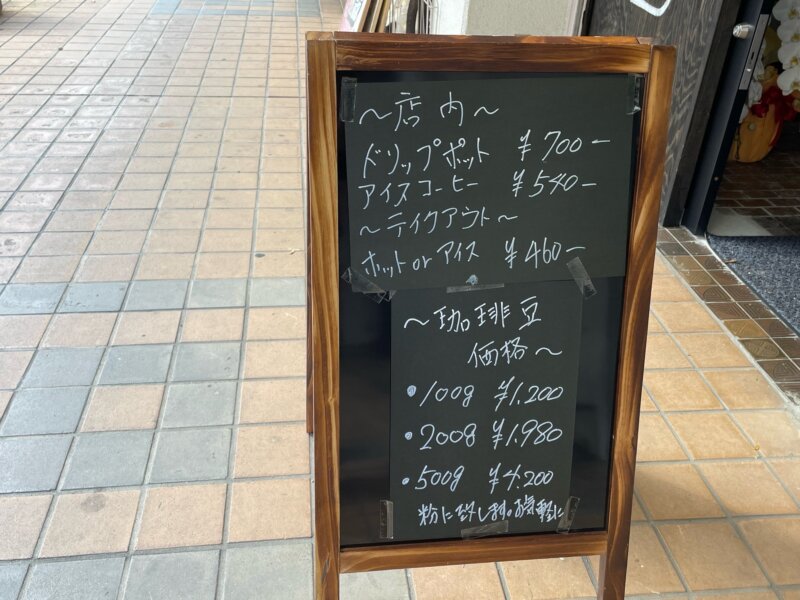 〜店内〜
ドリップポット ¥700ー
アイスコーヒー ¥540ー
〜テイクアウト〜
ホットorアイス ¥460ー
〜珈琲豆
価格〜
・100g ¥1.200
・200g ¥1.980
・500g ¥4.200
粉に致します。お気軽に